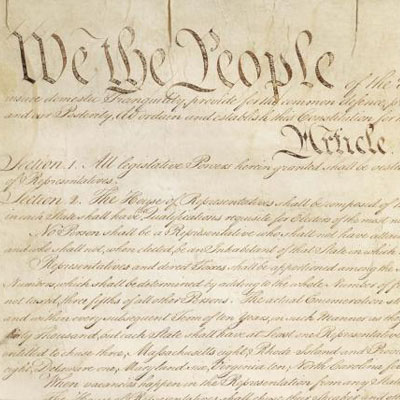 We the People of the
insure domestic Tranquility, provide for the common defence,
and our Posterity, do ordain and establish this Constitution for
Article.
Section 1. All legislative Powers herein granted shall be vested
of Representatives.
Section 2. The House of Representatives shall be composed of
in each State shall have Qualifications requisite for Electors of the most
No Person shall be a Representative who shall not have
and who shall not, when elected, be an Inhabitant of that State in which
Representatives and direct Taxes shall be apportioned among the
Numbers, which shall be determined by adding to the whole Number of
not taxed, three fifths of all other Persons. The actual Enumeration
and within every subsequent Term of ten Years, in such Manner as
thirty Thousand, but each State shall have at Least one Representative
entitled to chuse three, Massachusetts eight, Rhode Island and
eight, Delaware one, Maryland six, Virginia ten, North Carolina
When vacancies happen in the Representation from any State
the House of Representatives shall chuse their Speaker and other